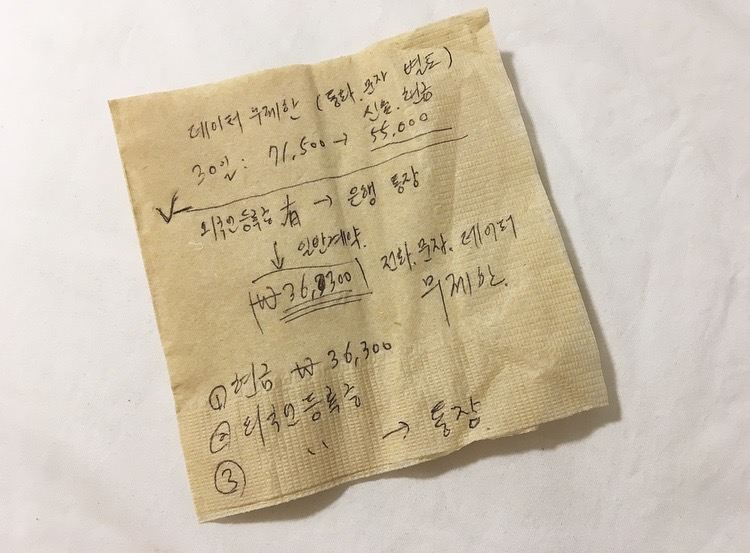 데이터 무제한 (통화. 문자 별도)
신용. 현금
30일: 71,500 → 55,000
✓ 외국인등록증 有 → 은행 통장
↓ 일반계약.
₩ 36,300 전화. 문자. 데이터
무제한.
① 현금 ₩ 36,300
② 외국인등록증
③ 〃 → 통장